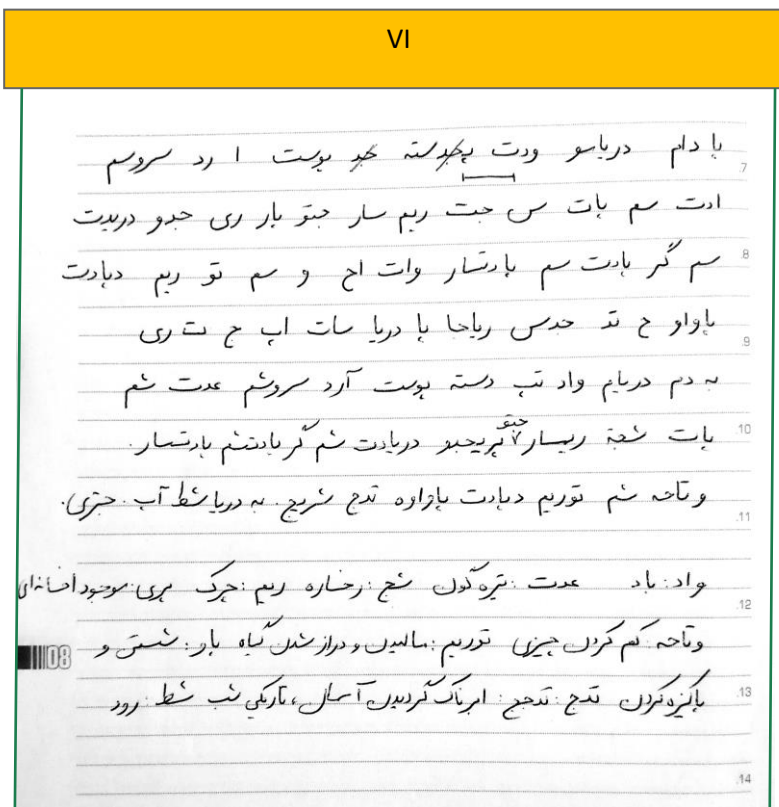 VI
با دام درباسو ودت بوست ا رد سروسم
ادت سم بات س حبت ریم سار حبتو بار ری حبدو دربدت
سم گر بادت سم بادتسار وات اح و سم تو ریم دبادت
باواو ح تد حدس ریاحا با دریا سات اب ح ت ری
به دم دربام واد تب دسته بوست آرد سروشم عدت شم
بات شعبة ریسار ۷ حبتو پریحبدو دربادت شم گر بادتشم بادتسار.
و تاحه شم توریم دبادت بازاوه تدج شریح. به دریا شط آب. حتری.
واد: باد عدت: تیره گون شح: رخساره ریم: چرک پری: موجود افسانه‌ای
وتاحه: کم کردن چیزی توریم: مالیدن و دراز شدن گیاه بار: شستن و
پاکیزه کردن تدج: تدحج: ابرناک گردیدن آسمان، تاریکی شب شط: رود
7
8
9
10
11
12
13
14
08